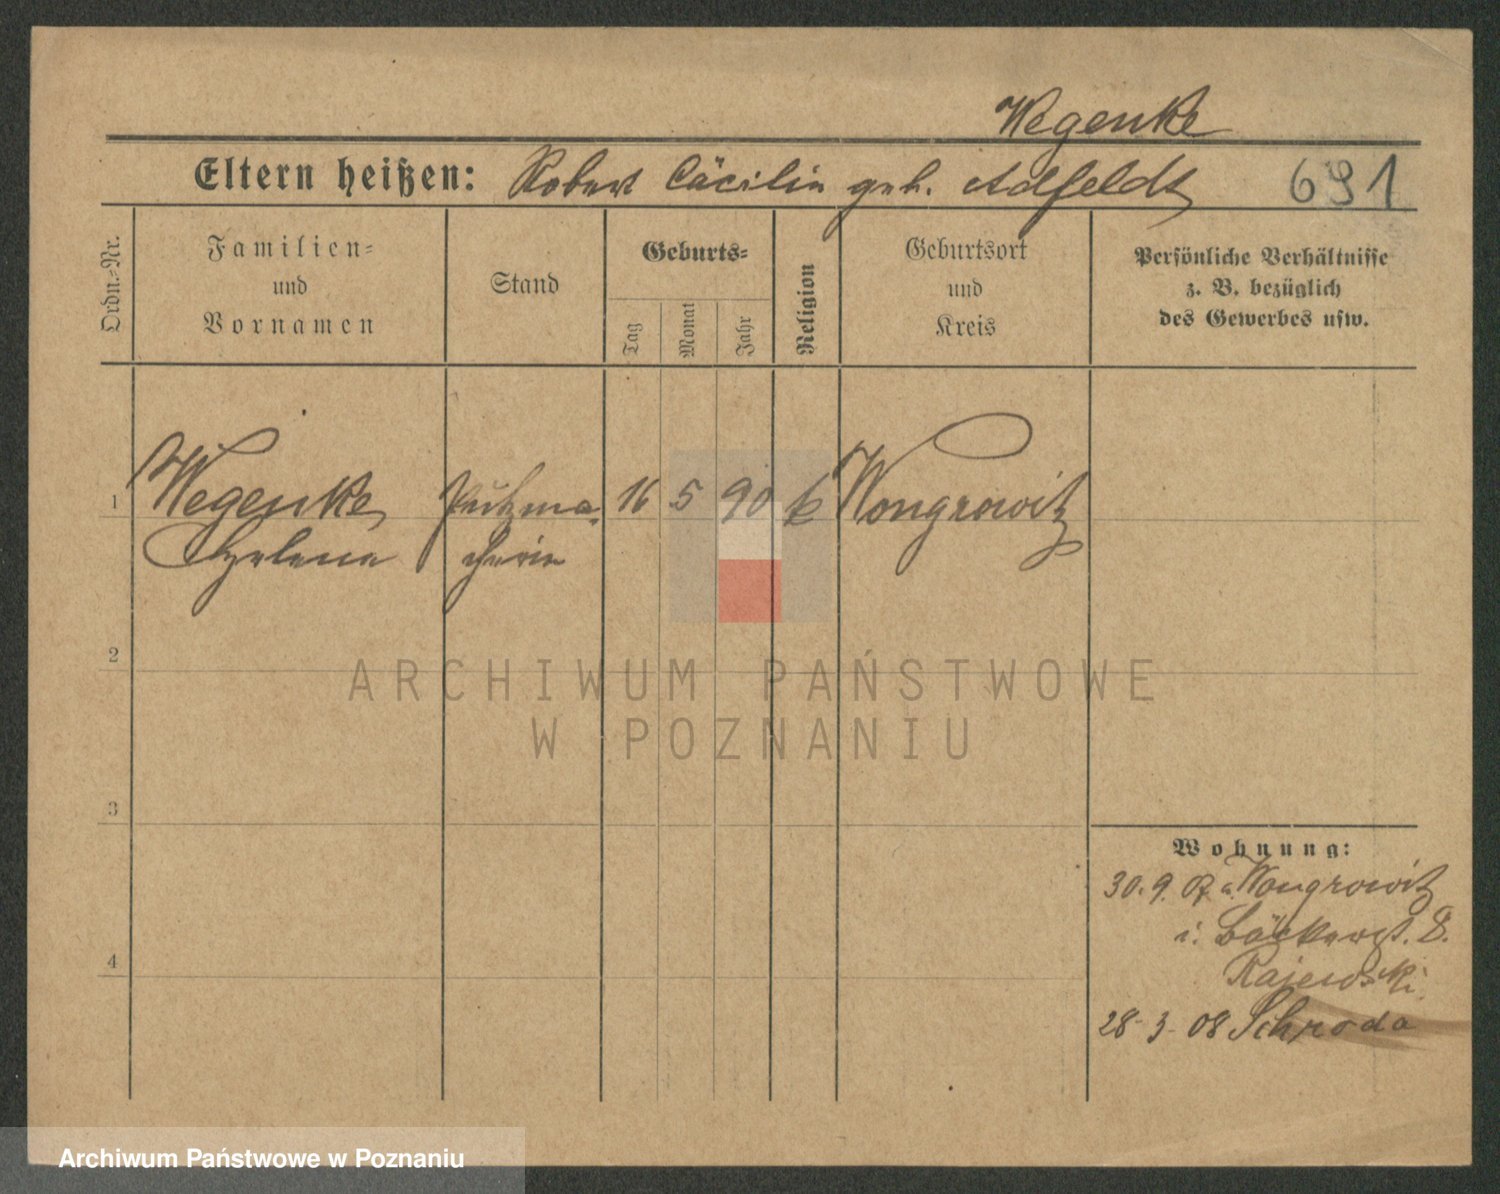 Wegenke
Eltern heißen: Robert Cäcilie geb. Adfeldt 691
Ordn.-Nr.
Familien-
und
Vornamen
Stand
Geburts-
Tag
Monat
Jahr
Religion
Geburtsort
und
Kreis
Persönliche Verhältnisse
z. B. bezüglich
des Gewerbes usw.
1 Wegenke Putzma- 16 5 90 k Wongrowitz
Helene cherin
2
ARCHIWUM PAŃSTWOWE
W POZNANIU
3
Wohnung:
30.9.07 a. Wongrowitz
i. Bäckerst. 8.
Rajewski
4
28-3-08 Schroda
Archiwum Państwowe w Poznaniu